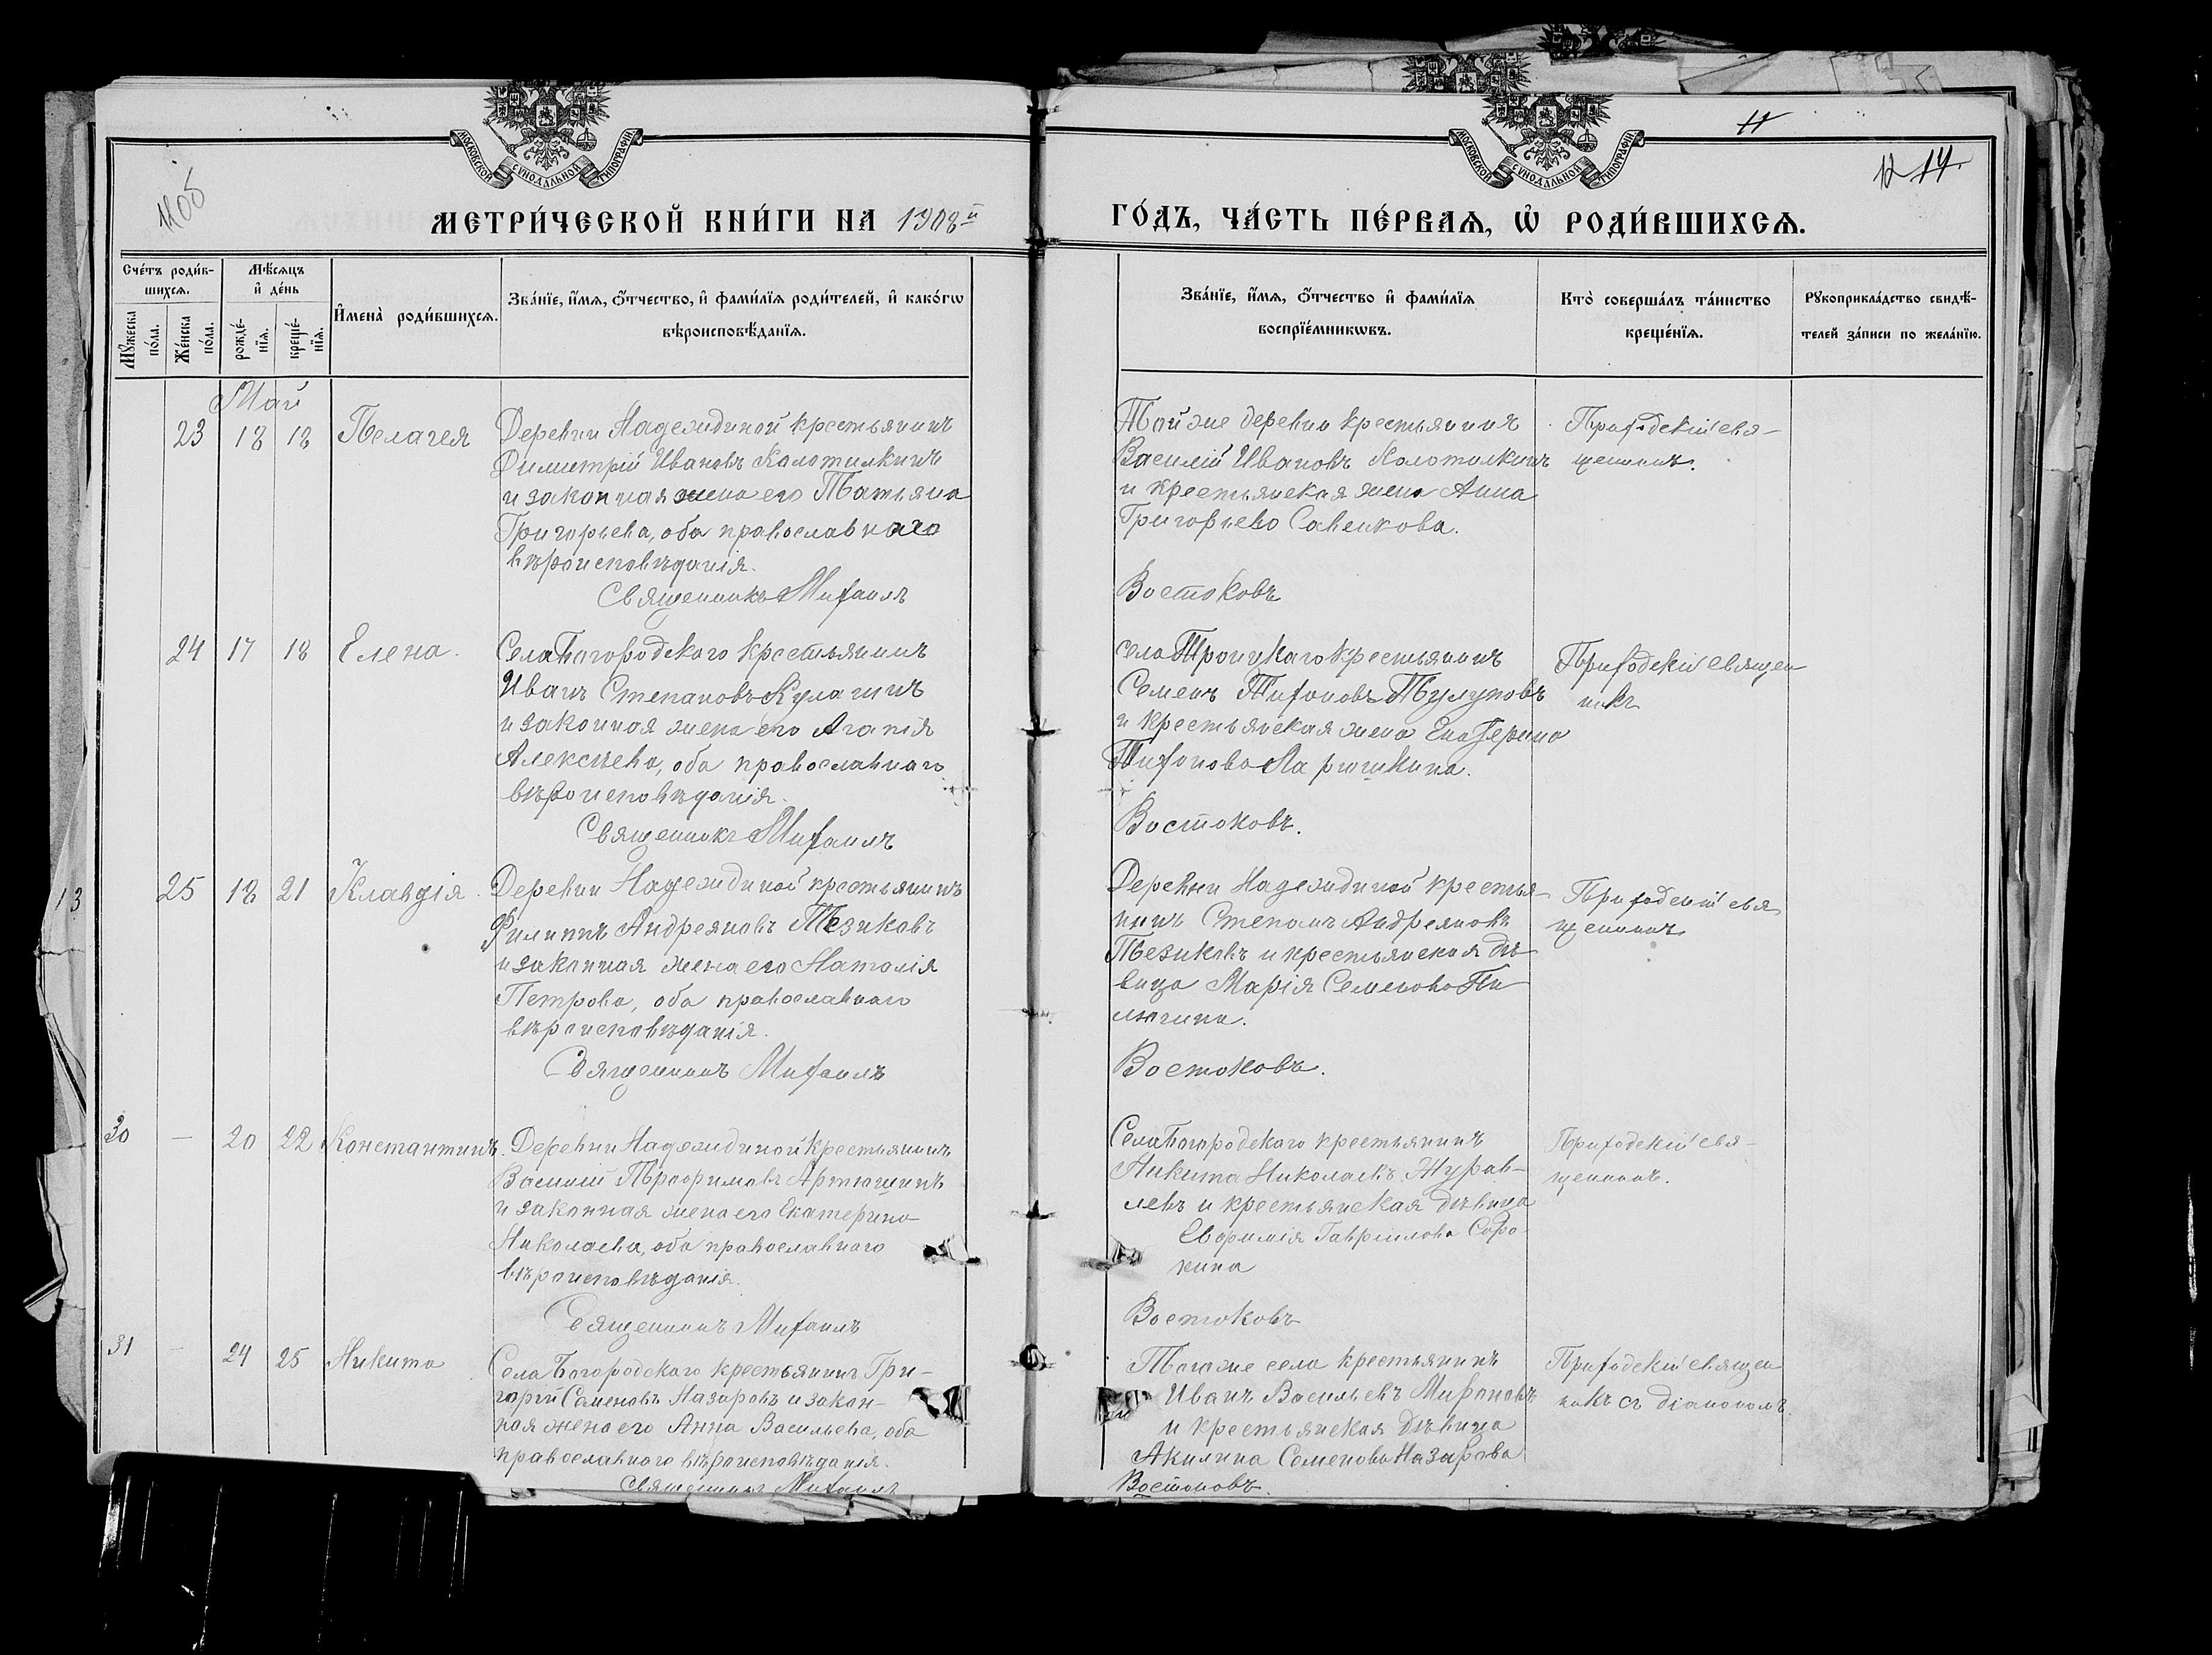 МОСКОВСКОЙ СѴНОДАЛЬНОЙ ТИПОГРАФІИ
МОСКОВСКОЙ СѴНОДАЛЬНОЙ ТИПОГРАФІИ
11
12 14
1105
МЕТРИ́ЧЕСКОЙ КНИ́ГИ НА 1908й
ГО́ДЪ, ЧА́СТЬ ПЕ́РВАѦ, Ѽ РОДИ́ВШИХСѦ.
Сче́тъ роди́в-
шихсѧ.
Мꙋжеска по́ла.
Же́нска по́ла.
Мѣ́сѧцъ
и҆ де́нь
рожде́-
нїѧ.
креще́-
нїѧ.
И҆мена̀ роди́вшихсѧ.
Зва́нїе, и҆́мѧ, ѻ҆́тчество, и҆ фами́лїѧ роди́телей, и҆ како́гѡ
вѣроисповѣ́данїѧ.
Зва́нїе, и҆́мѧ, ѻ҆́тчество и҆ фами́лїѧ
воспрїе́мникѡвъ.
Кто̀ соверша́лъ та́инство
креще́нїѧ.
Рꙋкоприкла́дство свидѣ́-
телей за́писи по жела́нїю.
Май
23 18 18 Пелагея
Деревни Надеждиной крестьянинъ
Димитрій Ивановъ Колотилкинъ
и законная жена его Татьяна
Григорьева, оба православнаго
вѣроисповѣданія.
Священникъ Михаилъ
Той же деревни крестьянинъ
Василій Ивановъ Колотилкинъ
и крестьянская жена Анна
Григорьева Савенкова.
Востоковъ
Приходскій свя-
щенникъ.
24 17 18 Елена.
Села Богородскаго крестьянинъ
Иванъ Степановъ Кулагинъ
и законная жена его Агапія
Алексѣева, оба православнаго
вѣроисповѣданія.
Священникъ Михаилъ
села Троицкаго крестьянинъ
Семенъ Тихоновъ Тулуповъ
и крестьянская жена Екатерина
Тихонова Ларюшкина.
Востоковъ.
Приходскій священ
никъ
13
25 18 21 Клавдія.
Деревни Надеждиной крестьянинъ
Филиппъ Андреяновъ Тезиковъ
и законная жена его Наталія
Петрова, оба православнаго
вѣроисповѣданія.
Священникъ Михаилъ
Деревни Надеждиной крестья-
нинъ Степанъ Андреяновъ
Тезиковъ и крестьянская дѣ-
вица Марія Семенова Пи-
люгина.
Востоковъ.
Приходскій свя
щенникъ
30 — 20 22 Константинъ.
Деревни Надеждиной крестьянинъ
Василій Трофимовъ Артюшинъ
и законная жена его Екатерина
Николаева, оба православнаго
вѣроисповѣданія.
Священникъ Михаилъ
Села Богородскаго крестьянинъ
Никита Николаевъ Журав-
левъ и крестьянская дѣвица
Евфимія Гавріилова Соро-
кина
Востоковъ
Приходскій свя-
щенникъ.
31 — 24 25 Никита
Села Богородскаго крестьянинъ Гри-
горій Семеновъ Назаровъ и закон-
ная жена его Анна Васильева, оба
православнаго вѣроисповѣданія.
Священникъ Михаилъ
Тогоже села крестьянинъ
Иванъ Васильевъ Мироновъ
и крестьянская дѣвица
Акилина Семенова Назарова
Востоковъ.
Приходскій священ
никъ съ діакономъ.